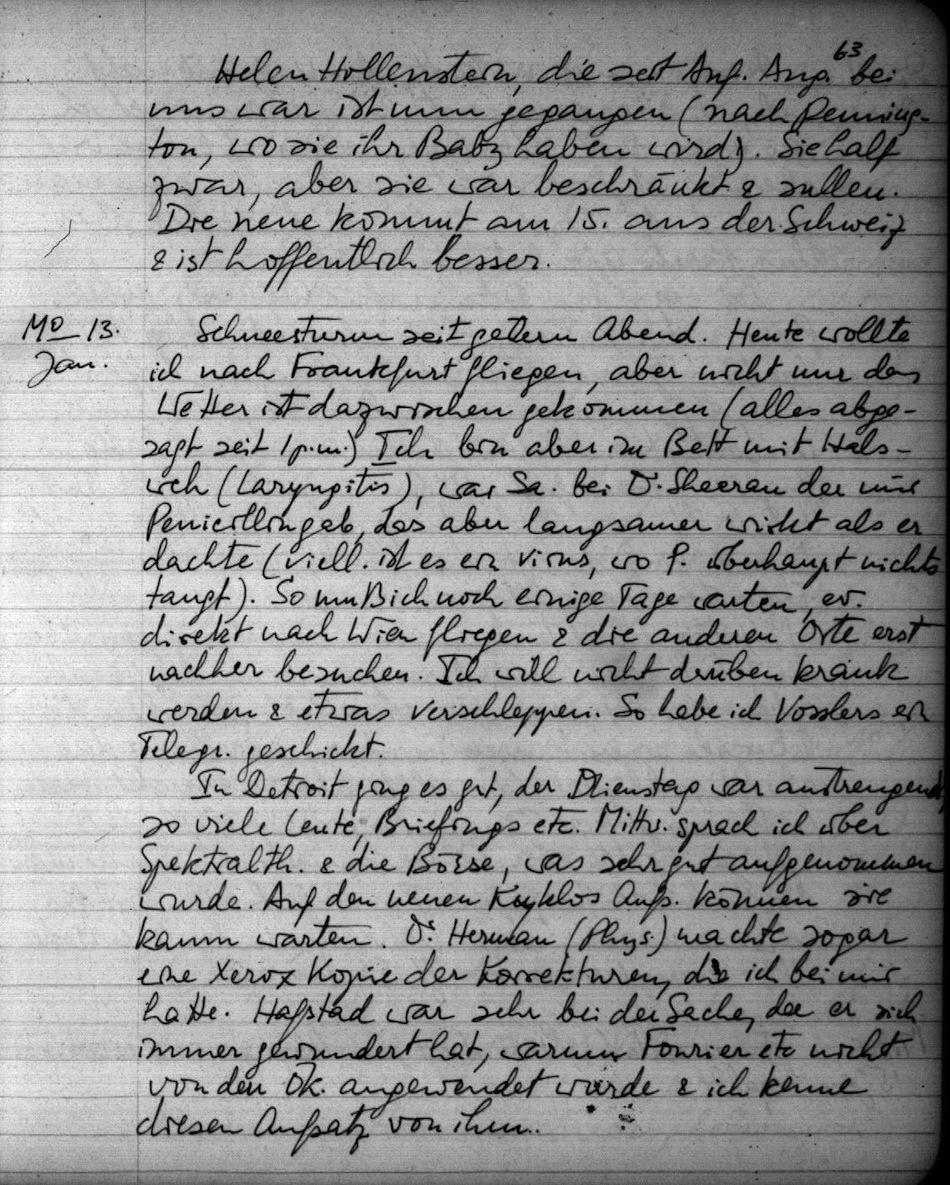 63
Helen Hollenstein, die seit Anf. Aug. bei
uns war ist nun gegangen (nach Penning-
ton, wo sie ihr Baby haben wird). Sie half
zwar, aber sie war beschränkt & sullen.
Die neue kommt am 15. aus der Schweiz
& ist hoffentlich besser.
Mo 13.
Jan.
Schneesturm seit gestern Abend. Heute wollte
ich nach Frankfurt fliegen, aber nicht nur das
Wetter ist dazwischen gekommen (alles abge-
sagt seit 1 p.m.) Ich bin aber im Bett mit Hals-
weh (Laryngitis), war Sa. bei Dr. Sheeran der mir
Penicillin gab, das aber langsamer wirkt als er
dachte (viell. ist es ein virus, wo P. überhaupt nichts
taugt). So muß ich noch einige Tage warten, ev.
direkt nach Wien fliegen & die anderen Orte erst
nachher besuchen. Ich will nicht drüben krank
werden & etwas verschleppen. So habe ich Vosslers ein
Telegr. geschickt.
In Detroit ging es gut, der Dienstag war anstrengend
so viele Leute, Briefings etc. Mittw. sprach ich über
Spektralth. & die Börse, was sehr gut aufgenommen
wurde. Auf den neuen Kyklos Aufs. können sie
kaum warten. Dr. Herman (Phys.) machte sogar
eine Xerox Kopie der Korrekturen, die ich bei mir
hatte. Hafstad war sehr bei der Sache, da er sich
immer gewundert hat, warum Fourier etc nicht
von den Ök. angewendet würde & ich kenne
diesen Aufsatz von ihm.